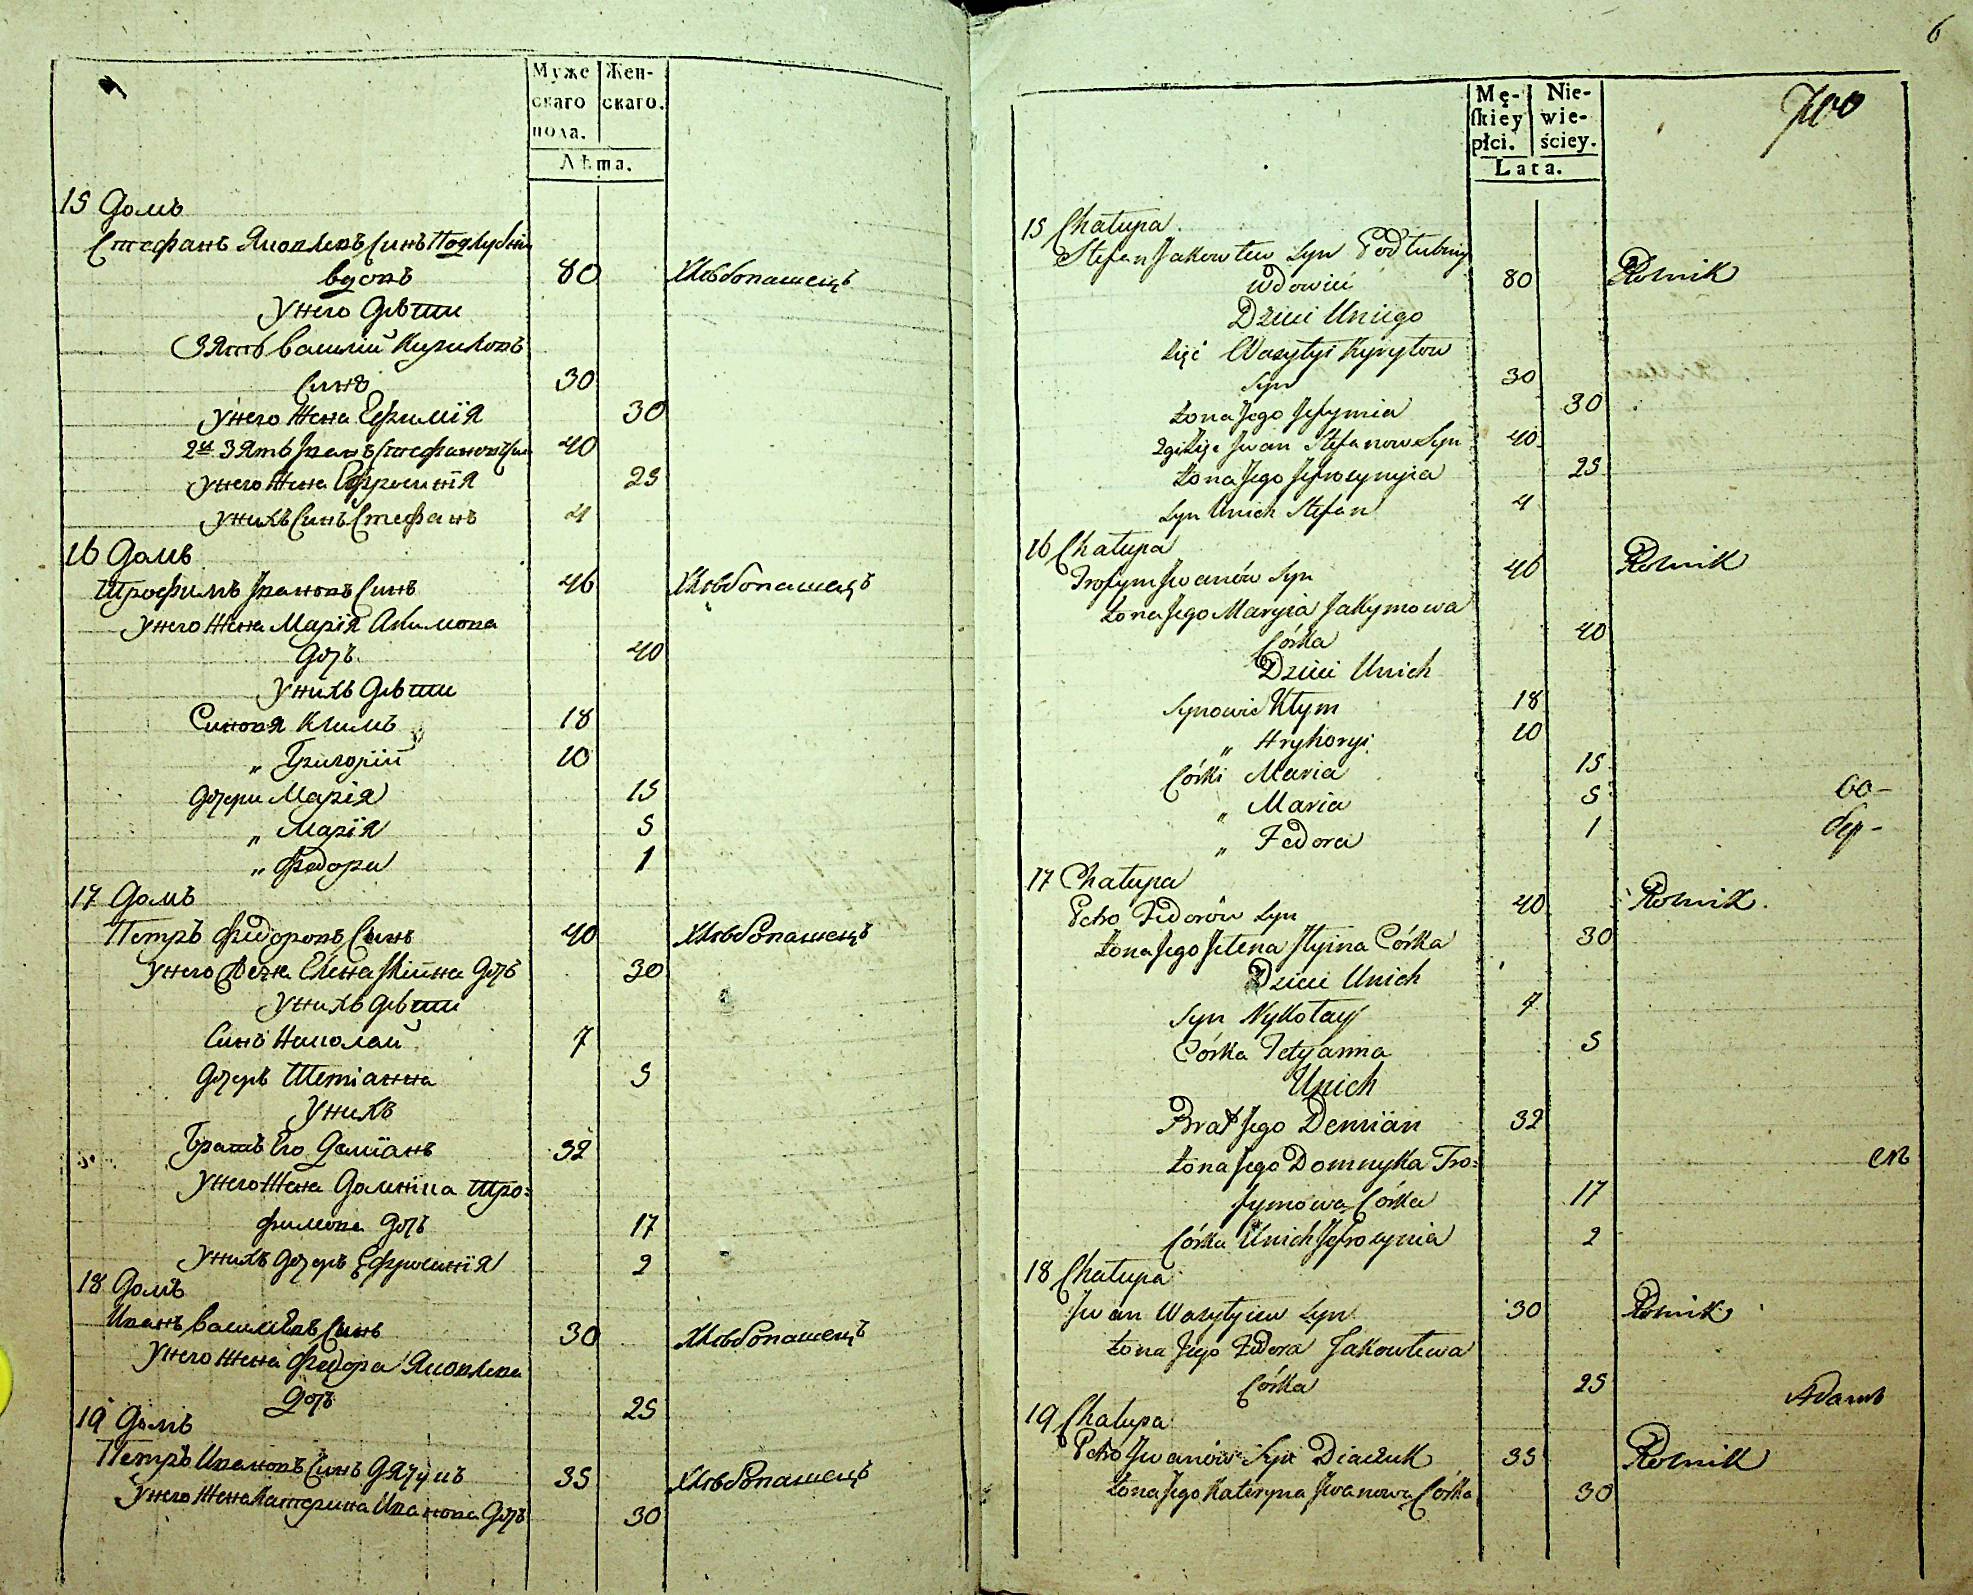 Муже
скаго
пола.
Жен-
скаго.
Лѣта.
15 Домъ
Стефанъ Яковлевъ Синъ Подлубній
вдовъ 80 Хлѣбопашецъ
Унего Дѣти
Зять Василій Кириловъ
Синъ 30
Унего Жена Ефимія 30
2й Зять Іванъ Стефановъ Син 40
Унего Жена Ефросинія 25
Унихъ Синъ Стефанъ 4
16 Домъ
Трофимъ Івановъ Синъ 46 Хлѣбопашецъ
Унего Жена Марія Акимова
Дочъ 40
Унихъ Дѣти
Синовя Климъ 18
„ Григорій 10
Дочери Марія 15
„ Марія 5
„ Федора 1
17 Домъ
Петръ Федоровъ Синъ 40 Хлѣбопашецъ
Унего Жена Елена Ілійна Дочъ 30
Унихъ Дѣти
Синъ Николай 7
Дочеръ Тетіанна 5
Унихъ
Братъ Его Деміанъ 32
Унего Жена Домніка Тро=
фимова Дочъ 17
Унихъ Дочеръ Ефросинія 2
18 Домъ
Иванъ Василіевъ Синъ 30 Хлѣбопашецъ
Унего Жена Федора Яковлева
Дочъ 25
19 Домъ
Петръ Ивановъ Синъ Дячукъ 35 Хлѣбопашецъ
Унего Жена Катерина Иванова Дочъ 30
6
Mę-
ſkiey
płci.
Nie-
wie-
ściey.
Lata.
15 Chałupa
Stefan Jakowlew Syn Podłubny
Wdowiec 80 Rolnik
Dzieci Uniego
Zięć Wasyłyi Kyryłow
Syn 30
Żona Jego Jefymia 30
2gi Zięć Iwan Stefanow Syn 40
Żona Jego Jefrosynyia 25
Syn Unich Stefan 4
16 Chałupa
Trofym Iwanów Syn 46 Rolnik
Żona Jego Maryia Jakymowa
Córka 40
Dzieci Unich
Synowie Kłym 18
„ Hryhoryi 10
Córki Maria 15
„ Maria 5
„ Fedora 1
17 Chałupa
Petro Fedorów Syn 40 Rolnik
Żona Jego Jełena Iłyina Córka 30
Dzieci Unich
Syn Nykołay 7
Córka Tetyanna 5
Unich
Brat Jego Demiian 32
Żona Jego Domnyka Tro=
fymowa Córka 17
Córka Unich Jefrosynia 2
18 Chałupa
Iwan Wasyłyiew Syn 30 Rolnik
Żona Jego Fedora Jakowlewa
Córka 25
19 Chałupa
Petro Iwanów Syn Diaczuk 35 Rolnik
Żona Jego Kateryna Iwanowa Córka 30